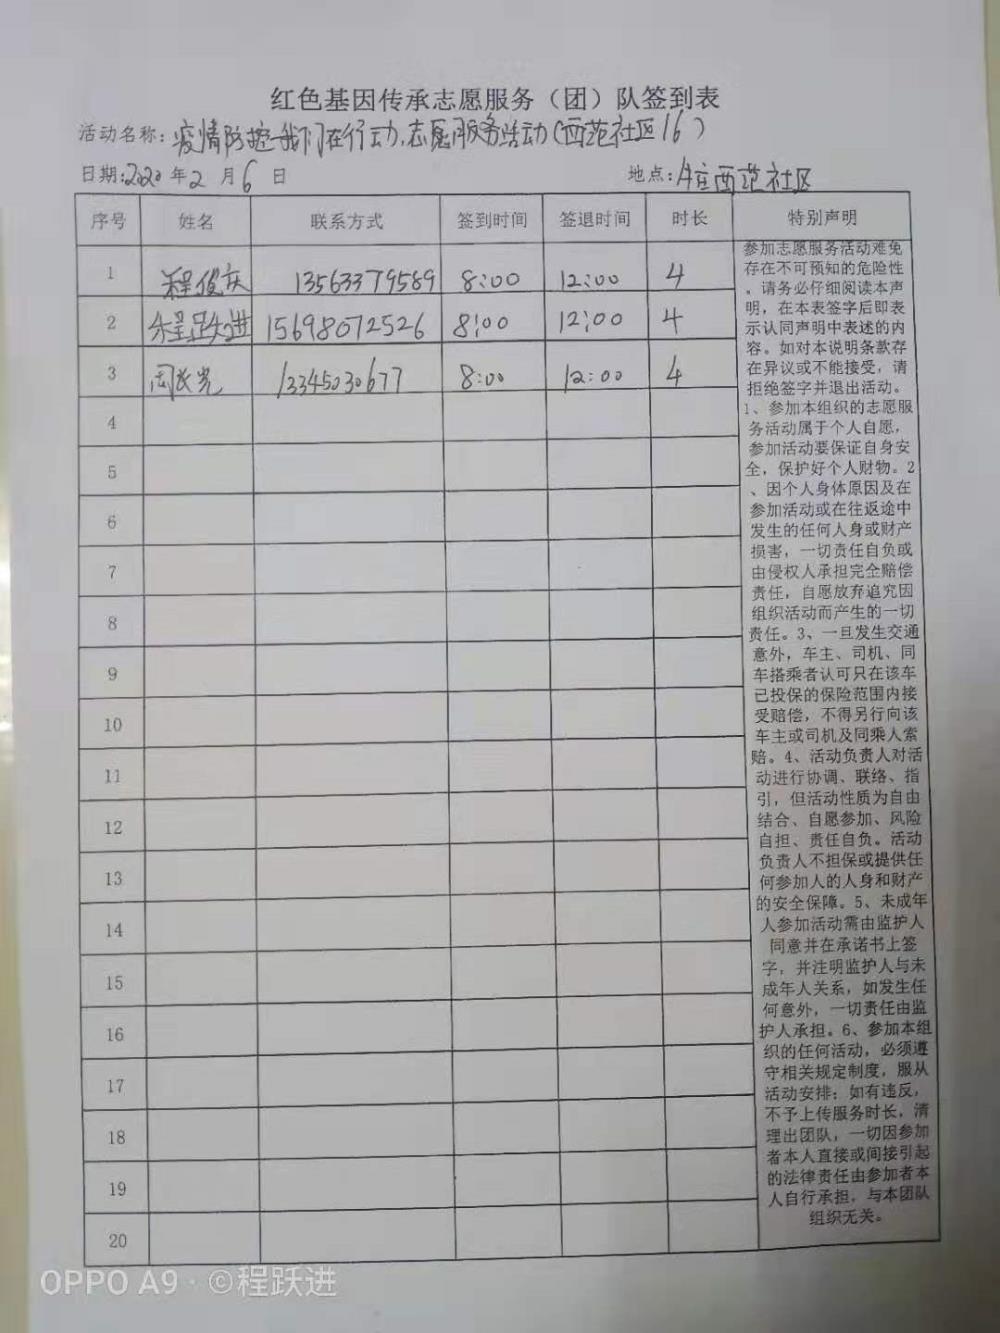 红色基因传承志愿服务（团）队签到表
活动名称：疫情防控我们在行动，志愿服务活动（西范社区16）
日期：2020年2月6日 地点：西范社区
序号 姓名 联系方式 签到时间 签退时间 时长 特别声明
1 程俊庆 13563379589 8:00 12:00 4
2 程跃进 15698072526 8:00 12:00 4
3 周长光 13345030677 8:00 12:00 4
4
5
6
7
8
9
10
11
12
13
14
15
16
17
18
19
20
参加志愿服务活动难免
存在不可预知的危险性
，请务必仔细阅读本声
明，在本表签字后即表
示认同声明中表述的内
容。如对本说明条款存
在异议或不能接受，请
拒绝签字并退出活动。
1、参加本组织的志愿服
务活动属于个人自愿，
参加活动要保证自身安
全，保护好个人财物。2
、因个人身体原因及在
参加活动或在往返途中
发生的任何人身或财产
损害，一切责任自负或
由侵权人承担完全赔偿
责任，自愿放弃追究因
组织活动而产生的一切
责任。3、一旦发生交通
意外，车主、司机、同
车搭乘者认可只在该车
已投保的保险范围内接
受赔偿，不得另行向该
车主或司机及同乘人索
赔。4、活动负责人对活
动进行协调、联络、指
引，但活动性质为自由
结合、自愿参加、风险
自担、责任自负。活动
负责人不担保或提供任
何参加人的人身和财产
的安全保障。5、未成年
人参加活动需由监护人
同意并在承诺书上签
字，并注明监护人与未
成年人关系，如发生任
何意外，一切责任由监
护人承担。6、参加本组
织的任何活动，必须遵
守相关规定制度，服从
活动安排；如有违反，
不予上传服务时长，清
理出团队，一切因参加
者本人直接或间接引起
的法律责任由参加者本
人自行承担，与本团队
组织无关。
OPPO A9 · ©程跃进